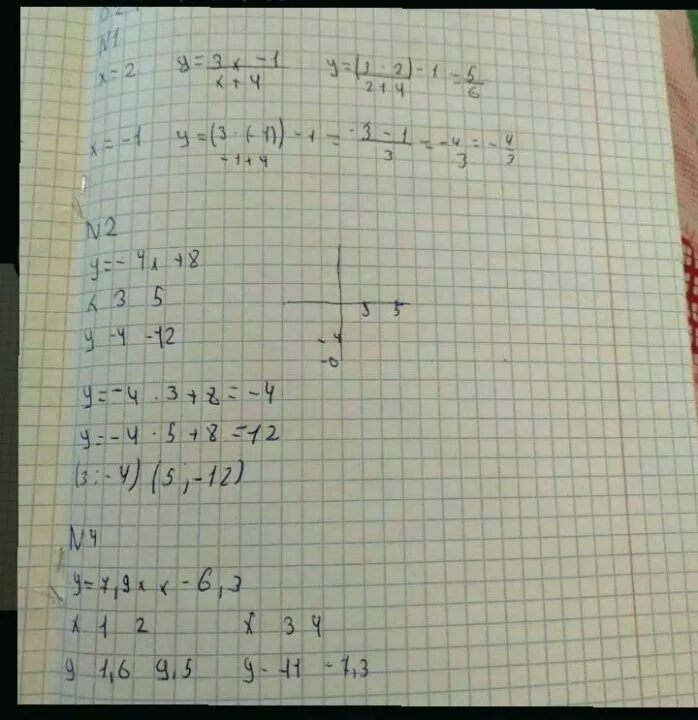 N1
x=2 y=3x-1/x+4 y=(3·2)-1/2+4=5/6
x=-1 y=(3·(-1))-1/-1+4=-3-1/3=-4/3=-4/3
N2
y=-4x+8
x 3 5
y -4 -12
3 5
-4
y=-4·3+8=-4
y=-4·5+8=-12
(3;-4) (5;-12)
N4
y=7,9x x-6,3
x 1 2 x 3 4
y 1,6 9,5 y -11 -7,3